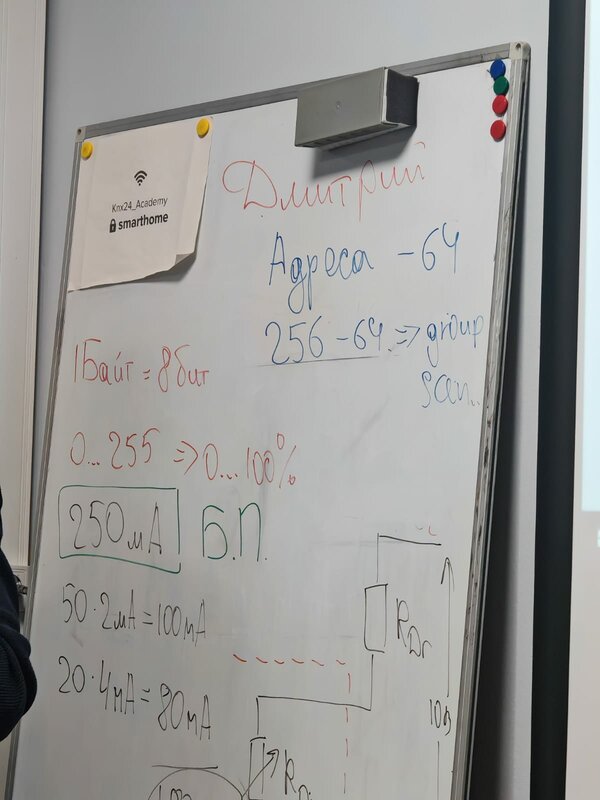 Knx24_Academy
smarthome
Дмитрий
Адреса - 64
256 - 64 => group
scen..
1Байт = 8бит
0...255 => 0...100%
250мА Б.П.
50 · 2мА = 100мА
20 · 4мА = 80мА
RDr
10В